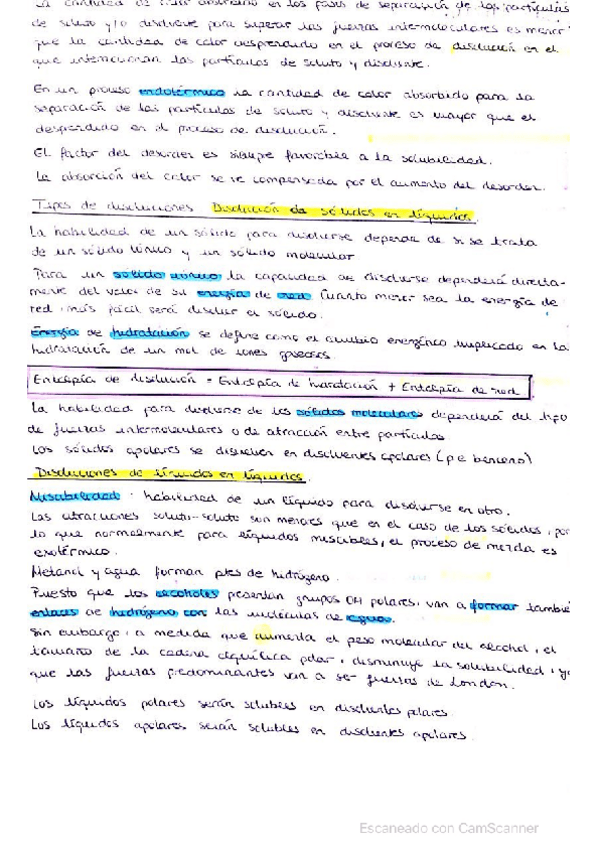 La cantidad de calor absorbido en los pasos de separación de las partículas
de soluto y/o disolvente para superar las fuerzas intermoleculares es menor
que la cantidad de calor desprendido en el proceso de disolución en el
que interaccionan las partículas de soluto y disolvente.
En un proceso endotérmico la cantidad de calor absorbido para la
separación de las partículas de soluto y disolvente es mayor que el
desprendido en el proceso de disolución.
El factor del desorden es siempre favorable a la solubilidad.
La absorción del calor se ve compensada por el aumento del desorden.
Tipos de disoluciones Disolución de sólidos en líquidos.
La habilidad de un sólido para disolverse depende de si se trata
de un sólido iónico y un sólido molecular
Para un sólido iónico la capacidad de disolverse dependerá directa-
mente del valor de su energía de red. Cuanto menor sea la energía de
red, más fácil será disolver el sólido.
Energía de hidratación se define como el cambio energético implicado en la
hidratación de un mol de iones gaseosos.
Entalpía de disolución = Entalpía de hidratación + Entalpía de red
La habilidad para disolverse de los sólidos moleculares dependerá del tipo
de fuerzas intermoleculares o de atracción entre partículas.
Los sólidos apolares se disuelven en disolventes apolares (p.e benceno)
Disoluciones de líquidos en líquidos.
Miscibilidad: habilidad de un líquido para disolverse en otro.
Las atracciones soluto-soluto son menores que en el caso de los sólidos, por
lo que normalmente para líquidos miscibles, el proceso de mezcla es
exotérmico.
Metanol y agua forman ptes de hidrógeno.
Puesto que los alcoholes presentan grupos OH polares, van a formar también
enlaces de hidrógeno con las moléculas de agua.
Sin embargo, a medida que aumenta el peso molecular del alcohol, el
tamaño de la cadena alquílica polar, disminuye la solubilidad, ya
que las fuerzas predominantes van a ser fuerzas de London.
Los líquidos polares serán solubles en disolventes polares.
Los líquidos apolares serán solubles en disolventes apolares.
Escaneado con CamScanner